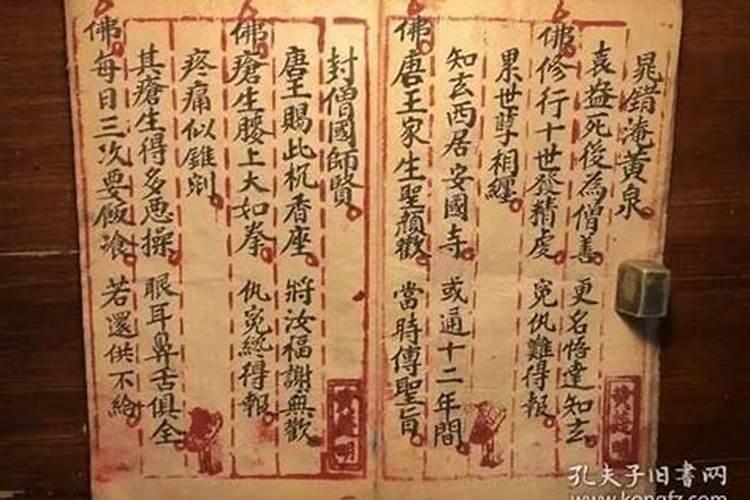 晁錯淹黄泉
袁盎死後為僧善 更名悟達知玄
佛修行十世發精虔 宛仇難得報
累世孽相纏
知玄西居安國寺 或通十二年間
佛唐王家生聖顏歡 當時傳聖旨
封僧國師賢
唐王賜此杌香座 將汝福謝無歡
佛瘡生腰上大如拳 仇宛終得報
疼痛似錐剜
其瘡生得多悪操 眼耳鼻舌俱全
佛每日三次要飯飡 若還供不給
孔夫子旧书网